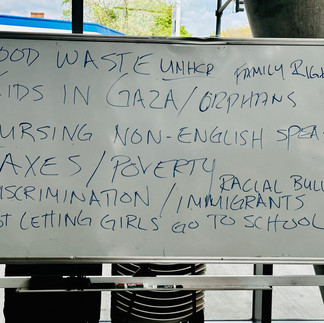 OOD WASTE UNHCR FAMILY RIGH
KIDS IN GAZA/ORPHANS
URSING NON-ENGLISH SPEA
AXES/POVERTY
RACIAL BULL
ISCRIMINATION/IMMIGRANTS
OT LETTING GIRLS GO TO SCHOOL